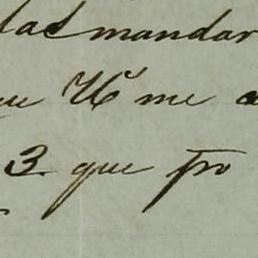 las mandar
que V. me a
3 que por